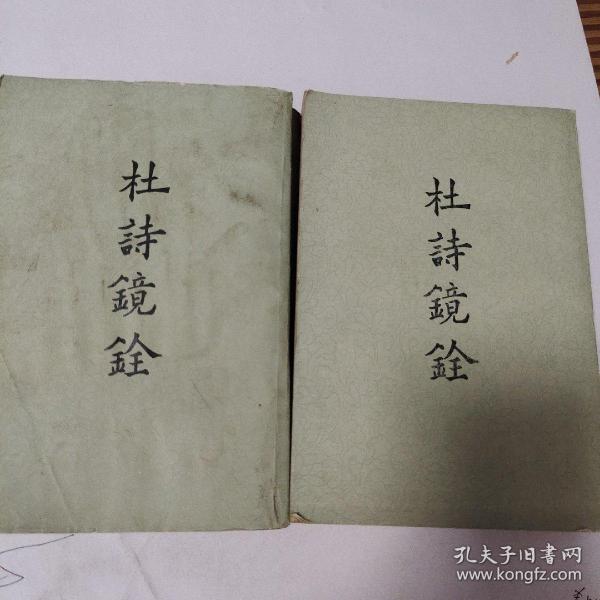 杜詩鏡銓
杜詩鏡銓
孔夫子旧书网
www.kongfz.com